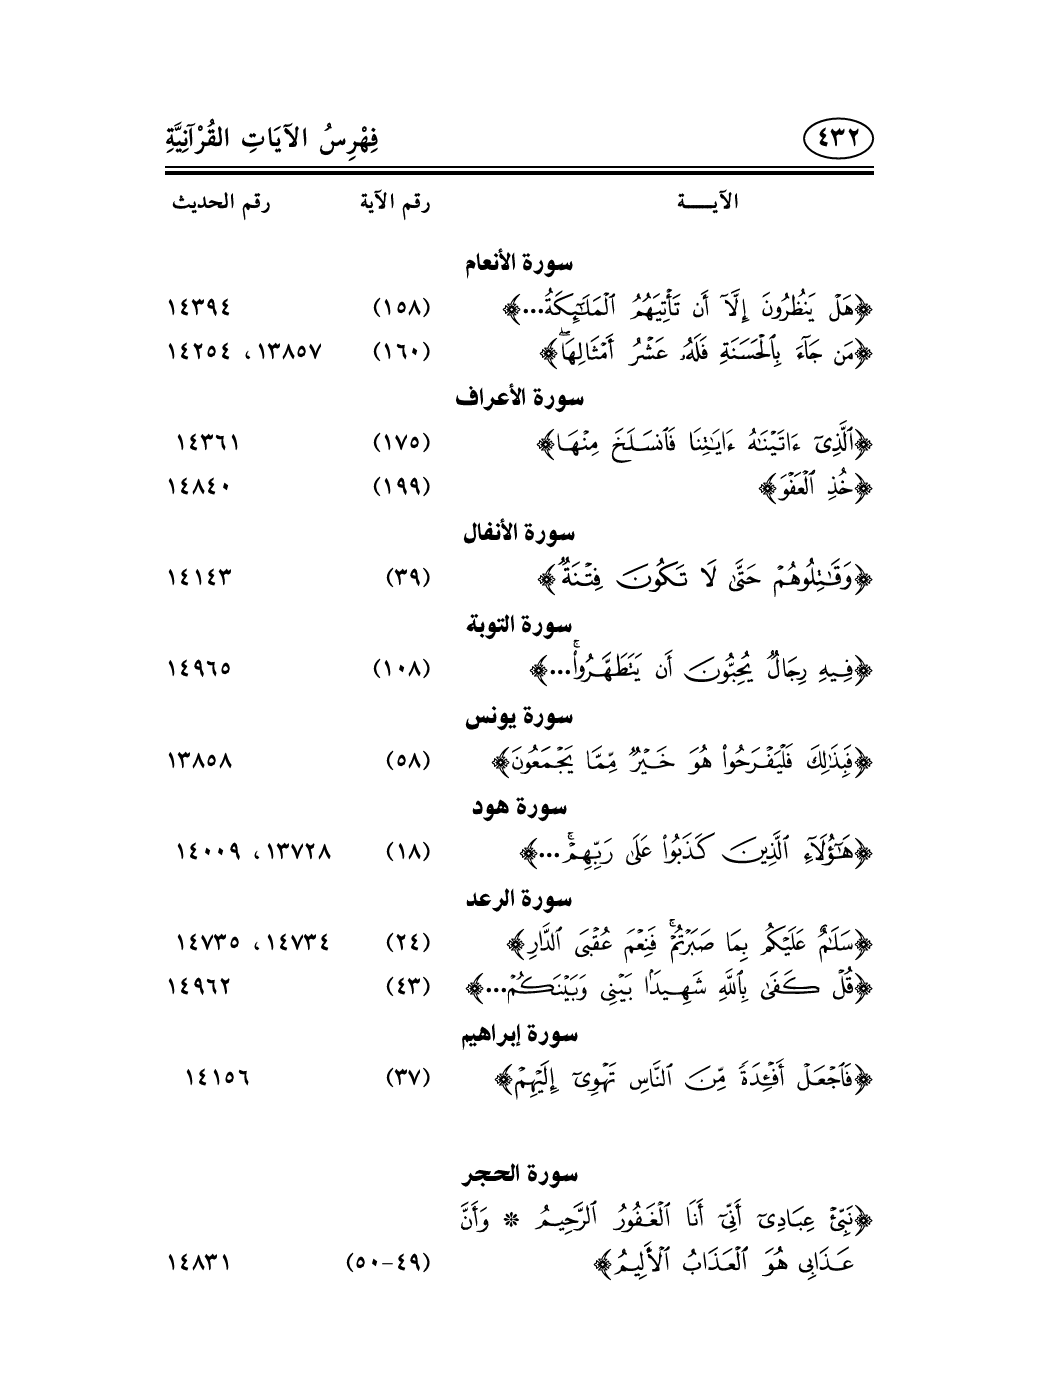 ٤٣٢ فِهْرِسُ الآيَاتِ القُرْآنِيَّةِ
الآيـــة رقم الآية رقم الحديث
سورة الأنعام
﴿هَلْ يَنظُرُونَ إِلَّآ أَن تَأْتِيَهُمُ ٱلْمَلَـٰٓئِكَةُ...﴾ (١٥٨) ١٤٣٩٤
﴿مَن جَآءَ بِٱلْحَسَنَةِ فَلَهُۥ عَشْرُ أَمْثَالِهَاۖ﴾ (١٦٠) ١٣٨٥٧، ١٤٢٥٤
سورة الأعراف
﴿ٱلَّذِىٓ ءَاتَيْنَـٰهُ ءَايَـٰتِنَا فَٱنسَلَخَ مِنْهَا﴾ (١٧٥) ١٤٣٦١
﴿خُذِ ٱلْعَفْوَ﴾ (١٩٩) ١٤٨٤٠
سورة الأنفال
﴿وَقَـٰتِلُوهُمْ حَتَّىٰ لَا تَكُونَ فِتْنَةٌ﴾ (٣٩) ١٤١٤٣
سورة التوبة
﴿فِيهِ رِجَالٌ يُحِبُّونَ أَن يَتَطَهَّرُواْۚ...﴾ (١٠٨) ١٤٩٦٥
سورة يونس
﴿فَبِذَٰلِكَ فَلْيَفْرَحُواْ هُوَ خَيْرٌ مِّمَّا يَجْمَعُونَ﴾ (٥٨) ١٣٨٥٨
سورة هود
﴿هَـٰٓؤُلَآءِ ٱلَّذِينَ كَذَبُواْ عَلَىٰ رَبِّهِمْۚ...﴾ (١٨) ١٣٧٢٨، ١٤٠٠٩
سورة الرعد
﴿سَلَـٰمٌ عَلَيْكُم بِمَا صَبَرْتُمْۚ فَنِعْمَ عُقْبَى ٱلدَّارِ﴾ (٢٤) ١٤٧٣٤، ١٤٧٣٥
﴿قُلْ كَفَىٰ بِٱللَّهِ شَهِيدًۢا بَيْنِى وَبَيْنَكُمْ...﴾ (٤٣) ١٤٩٦٢
سورة إبراهيم
﴿فَٱجْعَلْ أَفْـِٔدَةً مِّنَ ٱلنَّاسِ تَهْوِىٓ إِلَيْهِمْ﴾ (٣٧) ١٤١٥٦
سورة الحجر
﴿نَبِّئْ عِبَادِىٓ أَنِّىٓ أَنَا ٱلْغَفُورُ ٱلرَّحِيمُ * وَأَنَّ
عَذَابِى هُوَ ٱلْعَذَابُ ٱلْأَلِيمُ﴾ (٤٩-٥٠) ١٤٨٣١